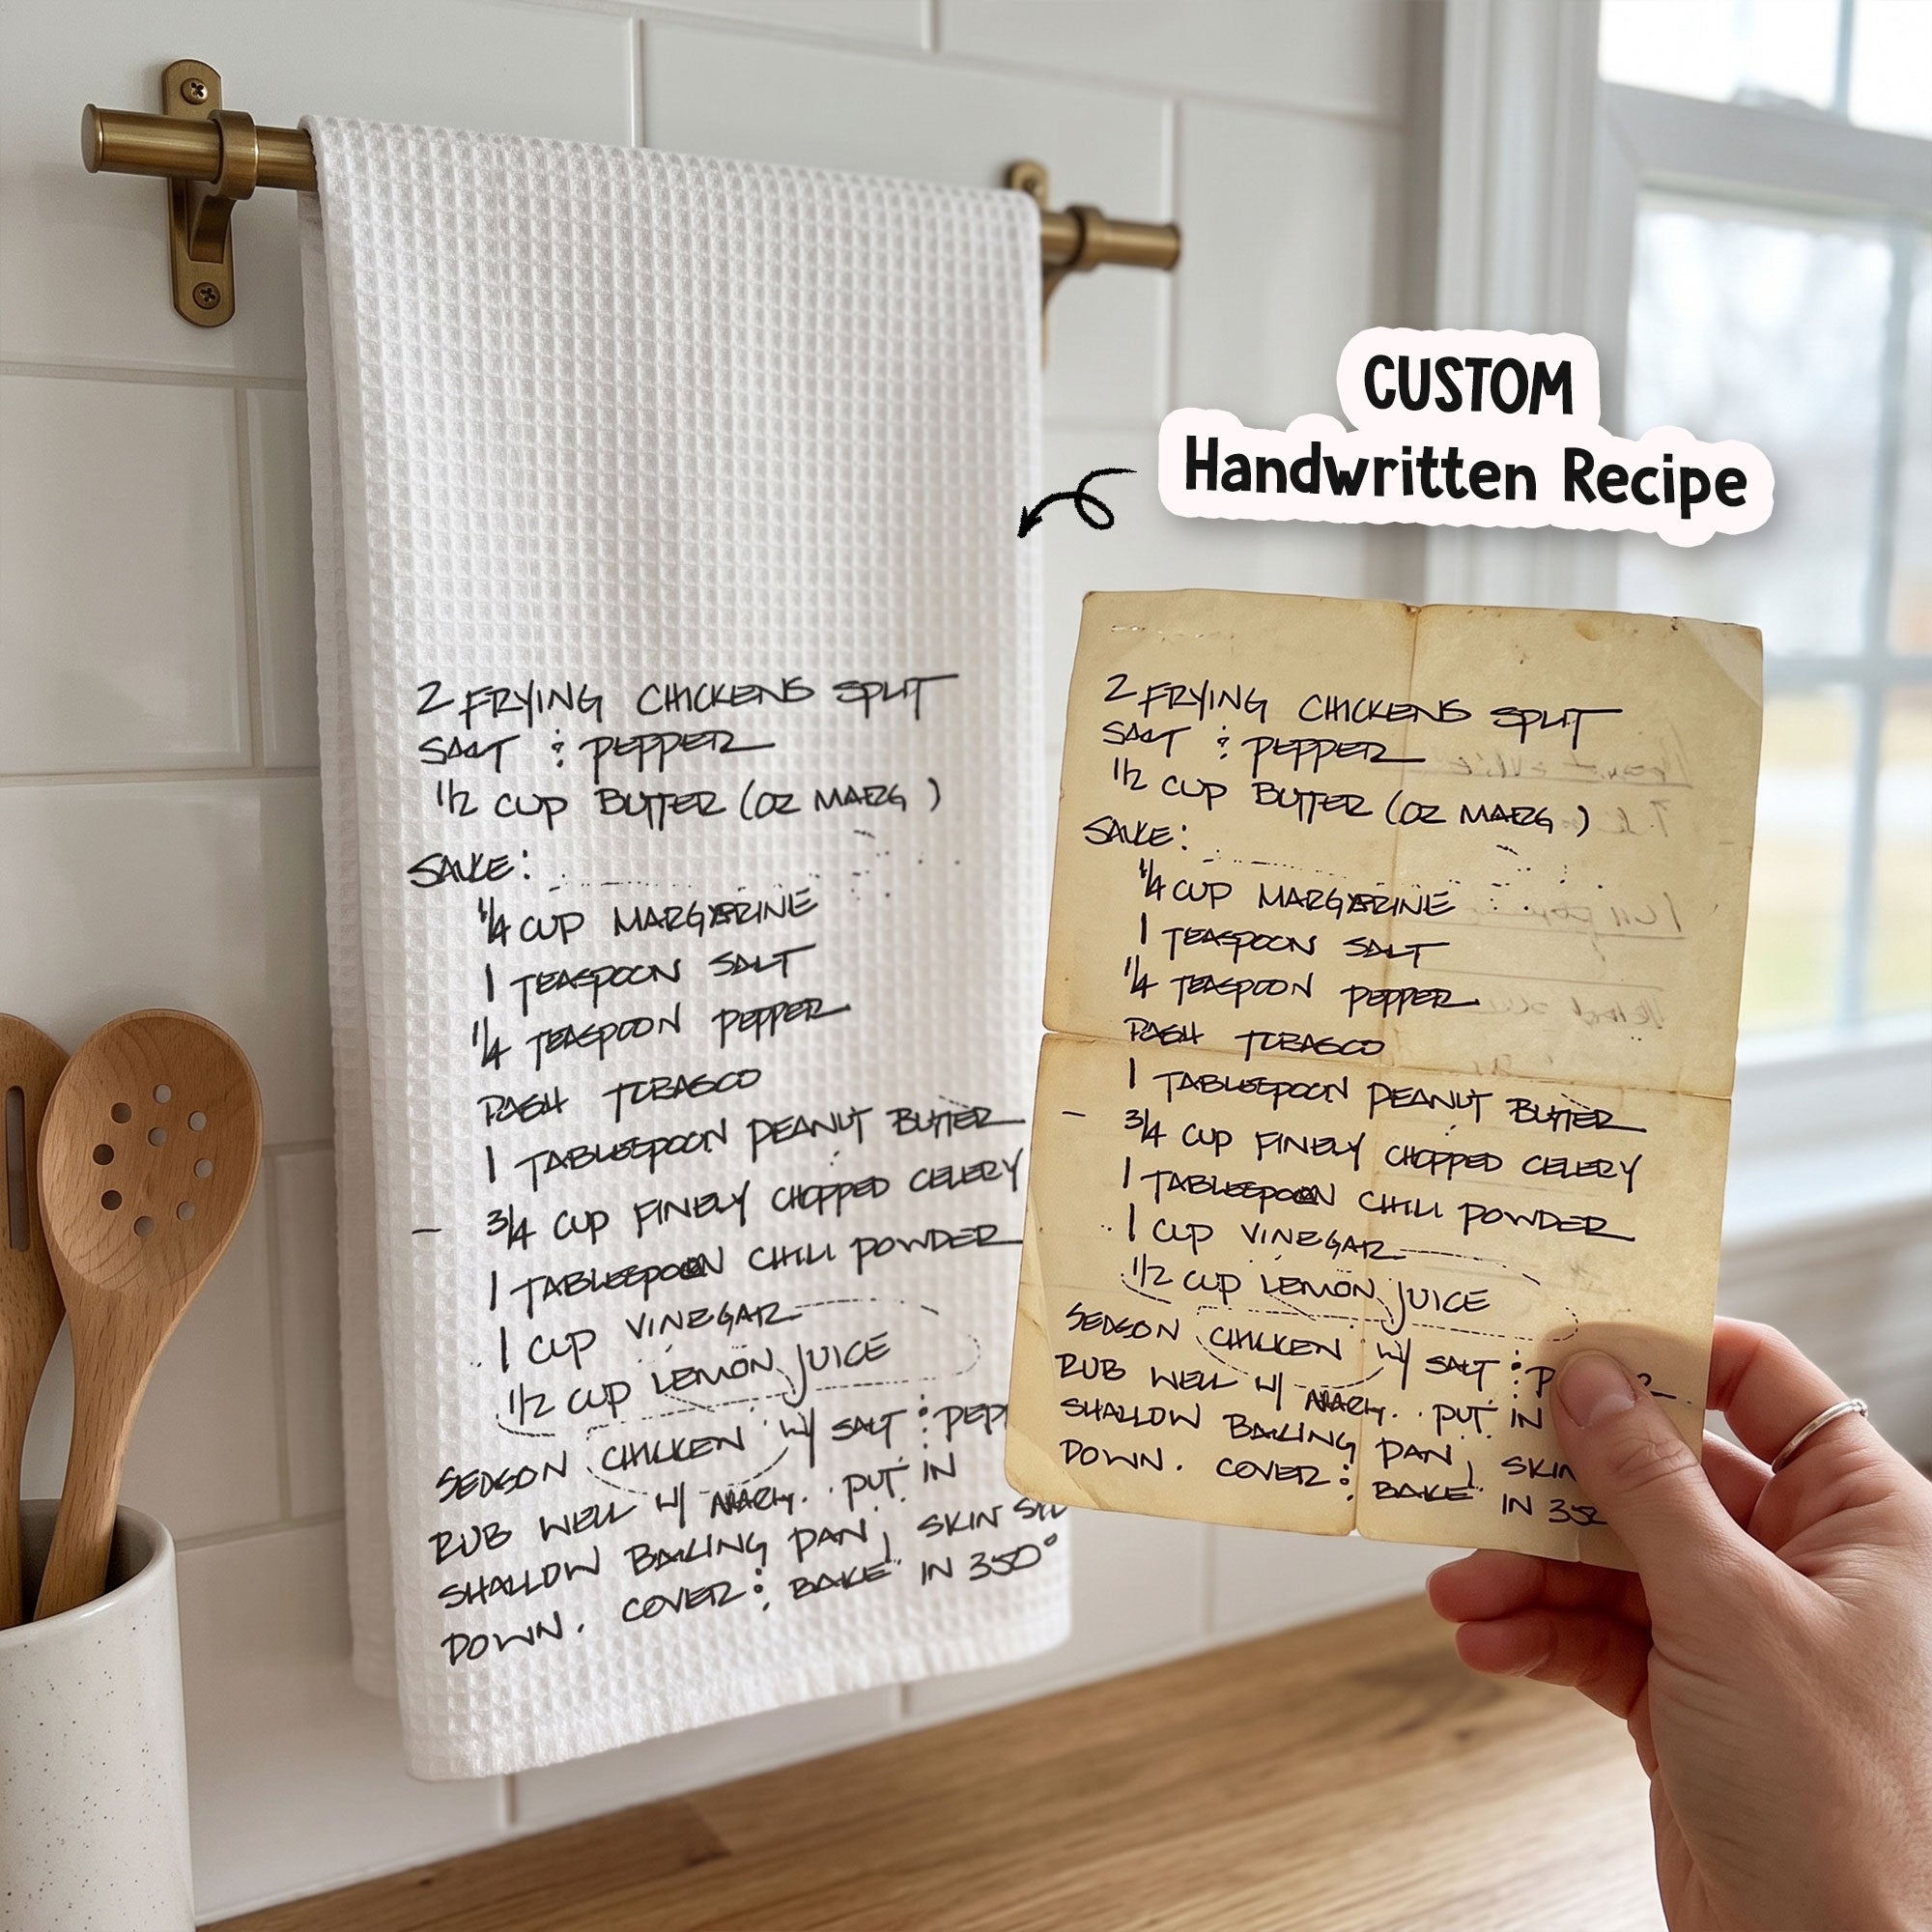 CUSTOM
Handwritten Recipe
2 FRYING CHICKENS SPLIT
SALT & PEPPER
1/2 CUP BUTTER (OR MARG )
SAUCE:
1/4 CUP MARGARINE
1 TEASPOON SALT
1/4 TEASPOON PEPPER
DASH TOBASCO
1 TABLESPOON PEANUT BUTTER
- 3/4 CUP FINELY CHOPPED CELERY
1 TABLESPOON CHILI POWDER
1 CUP VINEGAR
1/2 CUP LEMON JUICE
SEASON CHICKEN W/ SALT & PEPP
RUB WELL W/ MARG. PUT IN
SHALLOW BAKING PAN, SKIN
DOWN. COVER & BAKE IN 350°
2 FRYING CHICKENS SPLIT
SALT & PEPPER
1/2 CUP BUTTER (OR MARG )
SAUCE:
1/4 CUP MARGARINE
1 TEASPOON SALT
1/4 TEASPOON PEPPER
DASH TOBASCO
1 TABLESPOON PEANUT BUTTER
- 3/4 CUP FINELY CHOPPED CELERY
1 TABLESPOON CHILI POWDER
1 CUP VINEGAR
1/2 CUP LEMON JUICE
SEASON CHICKEN W/ SALT &
RUB WELL W/ MARG. PUT IN
SHALLOW BAKING PAN, SKIN
DOWN. COVER & BAKE IN 35